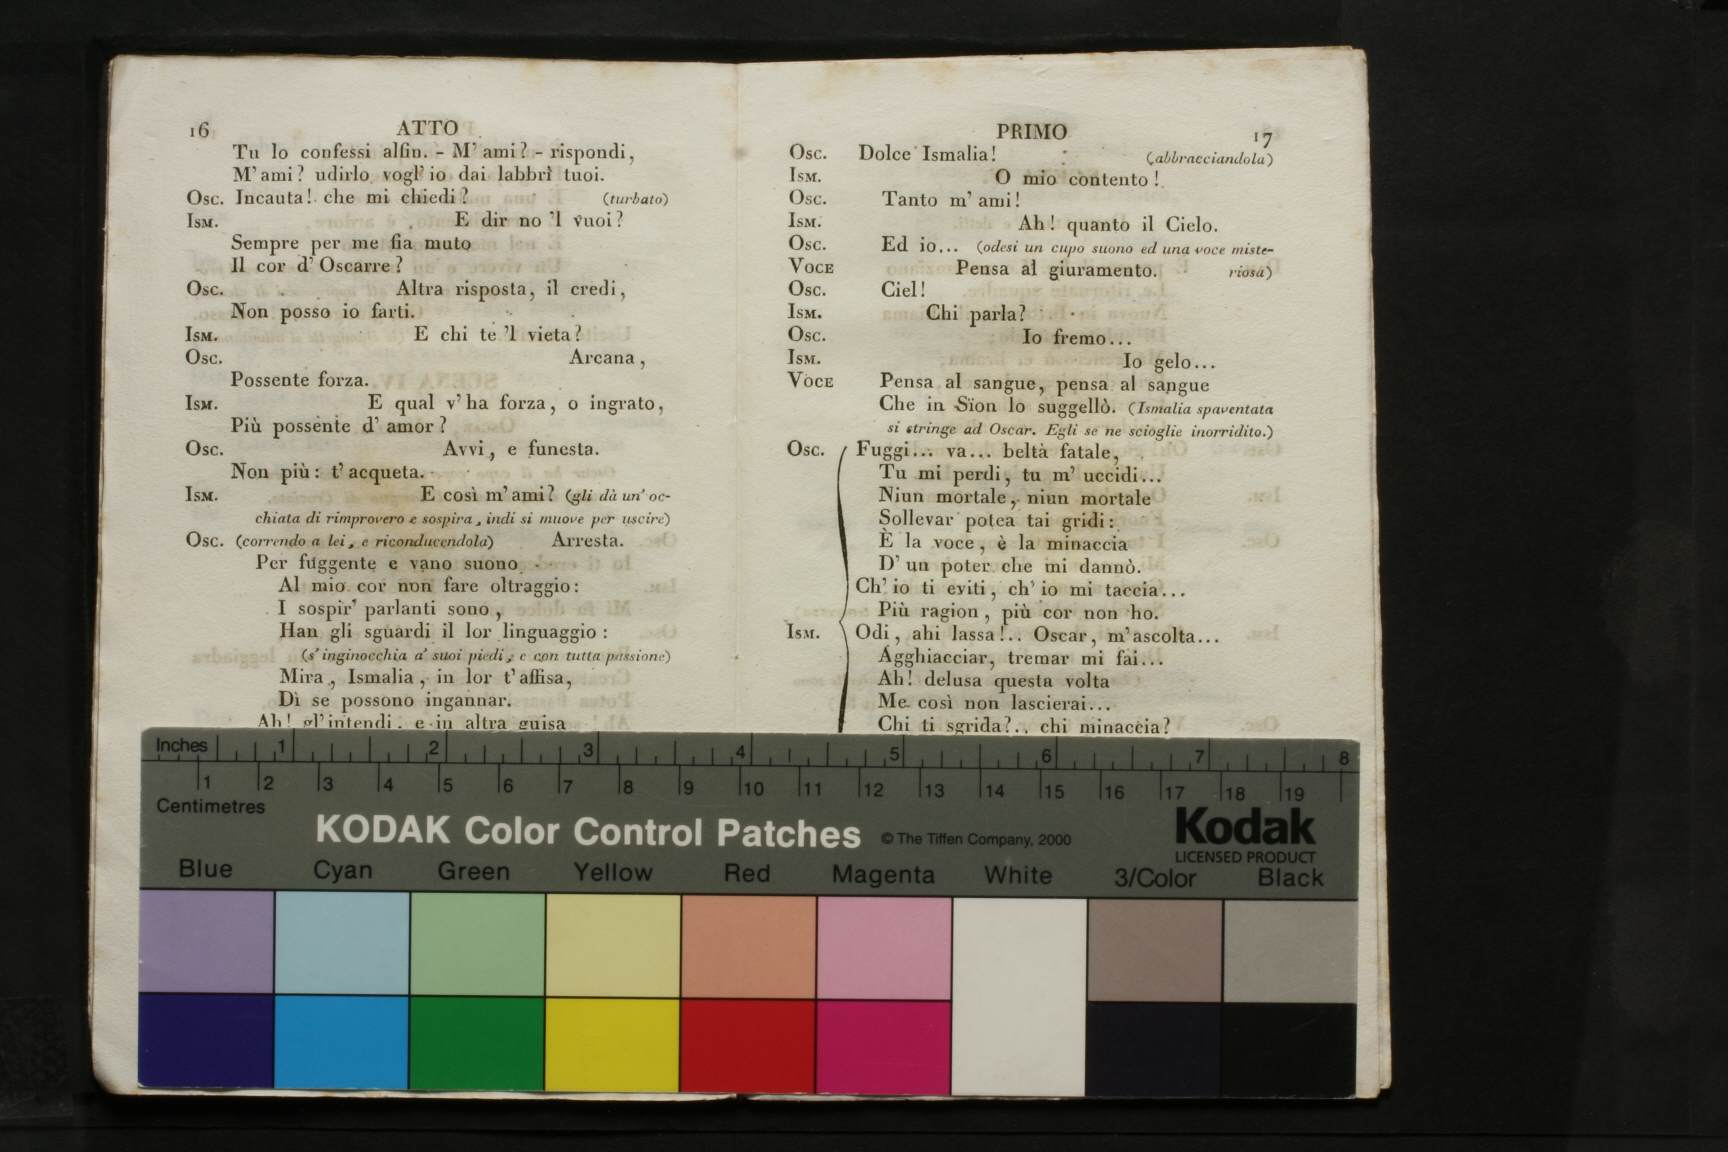 16 ATTO
Tu lo confessi alfin. - M' ami? - rispondi,
M' ami? udirlo vogl' io dai labbri tuoi.
Osc. Incauta! che mi chiedi? (turbato)
Ism. E dir no 'l vuoi?
Sempre per me fia muto
Il cor d' Oscarre?
Osc. Altra risposta, il credi,
Non posso io farti.
Ism. E chi te 'l vieta?
Osc. Arcana,
Possente forza.
Ism. E qual v' ha forza, o ingrato,
Più possente d' amor?
Osc. Avvi, e funesta.
Non più: t' acqueta.
Ism. E così m' ami? (gli dà un' oc-
chiata di rimprovero e sospira, indi si muove per uscire)
Osc. (correndo a lei, e riconducendola) Arresta.
Per fuggente e vano suono
Al mio cor non fare oltraggio:
I sospir' parlanti sono,
Han gli sguardi il lor linguaggio:
(s' inginocchia a' suoi piedi, e con tutta passione)
Mira, Ismalia, in lor t' affisa,
Dì se possono ingannar.
Ah! gl' intendi, e in altra guisa
PRIMO 17
Osc. Dolce Ismalia! (abbracciandola)
Ism. O mio contento!
Osc. Tanto m' ami!
Ism. Ah! quanto il Cielo.
Osc. Ed io... (odesi un cupo suono ed una voce miste-
Voce Pensa al giuramento. riosa)
Osc. Ciel!
Ism. Chi parla?
Osc. Io fremo...
Ism. Io gelo...
Voce Pensa al sangue, pensa al sangue
Che in Sïon lo suggellò. (Ismalia spaventata
si stringe ad Oscar. Egli se ne scioglie inorridito.)
Osc. Fuggi... va... beltà fatale,
Tu mi perdi, tu m' uccidi...
Niun mortale, niun mortale
Sollevar potea tai gridi:
È la voce, è la minaccia
D' un poter che mi dannò.
Ch' io ti eviti, ch' io mi taccia...
Più ragion, più cor non ho.
Ism. Odi, ahi lassa!.. Oscar, m' ascolta...
Agghiacciar, tremar mi fai...
Ah! delusa questa volta
Me così non lascierai...
Chi ti sgrida?.. chi minaccia?
Inches 1 2 3 4 5 6 7 8
1 2 3 4 5 6 7 8 9 10 11 12 13 14 15 16 17 18 19
Centimetres
KODAK Color Control Patches © The Tiffen Company, 2000 Kodak
LICENSED PRODUCT
Blue Cyan Green Yellow Red Magenta White 3/Color Black